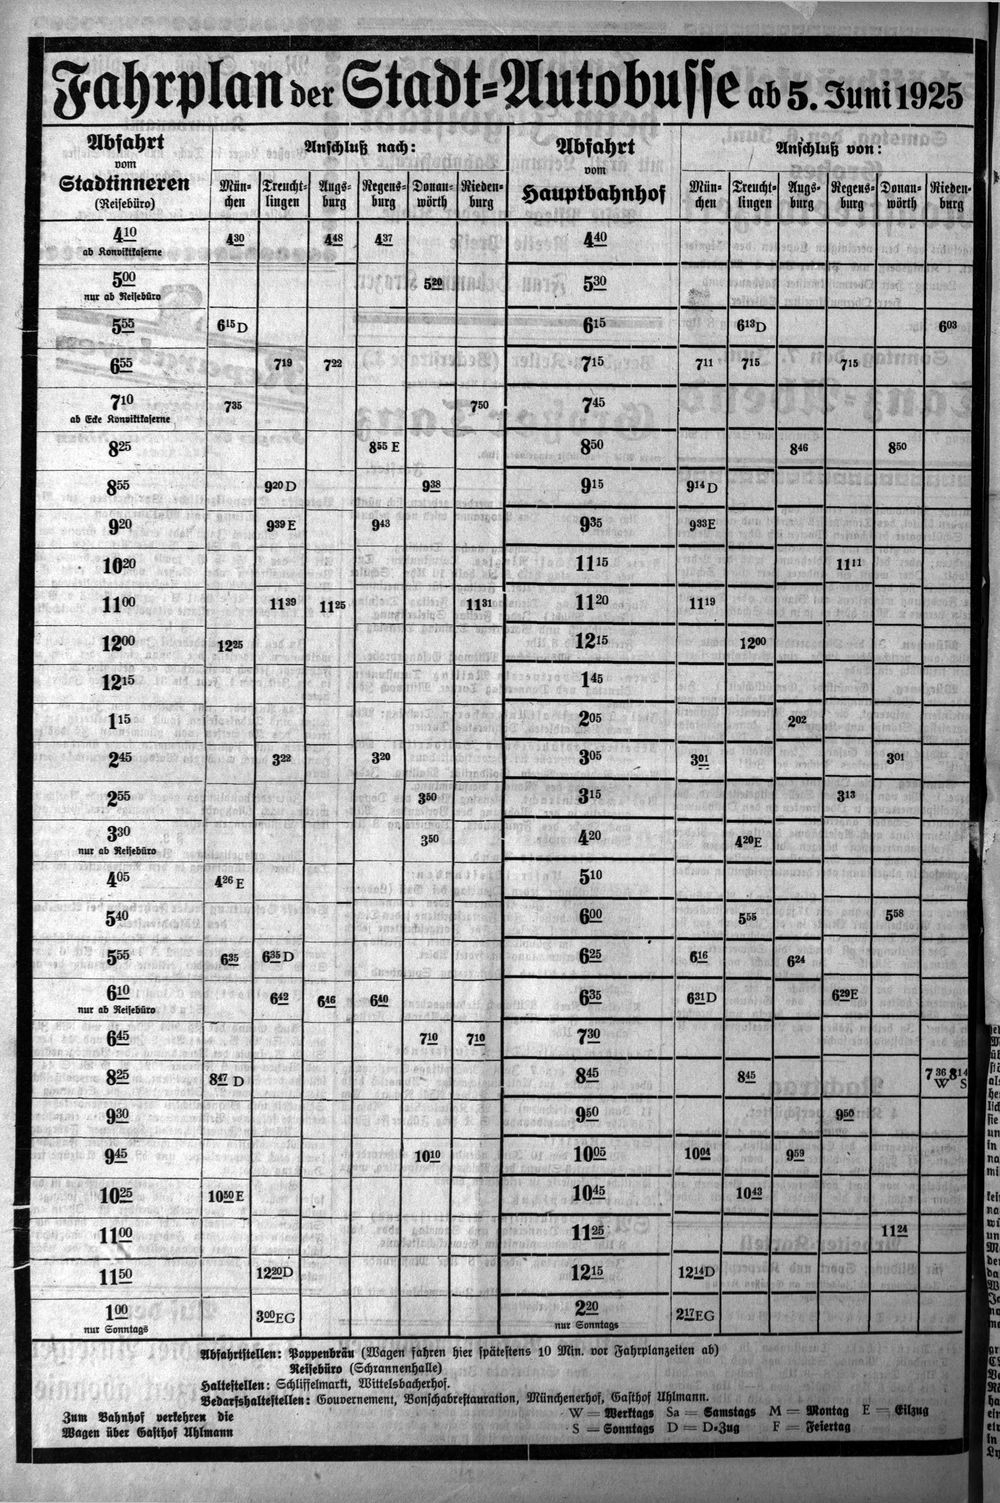 Fahrplan der Stadt=Autobusse ab 5. Juni 1925
Abfahrt vom Stadtinneren (Reisebüro) | Anschluß nach: | Abfahrt vom Hauptbahnhof | Anschluß von:
München | Treuchtlingen | Augsburg | Regensburg | Donauwörth | Riedenburg | München | Treuchtlingen | Augsburg | Regensburg | Donauwörth | Riedenburg
4 10 ab Konviktkaserne | 4 30 | | 4 48 | 4 37 | | | 4 40
5 00 nur ab Reisebüro | | | | | 5 20 | | 5 30
5 55 | 6 15 D | | | | | | 6 15 | | 6 13 D | | | | 6 03
6 55 | | 7 19 | 7 22 | | | | 7 15 | 7 11 | 7 15 | | 7 15
7 10 ab Ecke Konviktkaserne | 7 35 | | | | | 7 50 | 7 45
8 25 | | | | 8 55 E | | | 8 50 | | | 8 46 | | 8 50
8 55 | | 9 20 D | | | 9 38 | | 9 15 | 9 14 D
9 20 | | 9 39 E | | 9 43 | | | 9 35 | 9 33 E
10 20 | | | | | | | 11 15 | | | | 11 11
11 00 | | 11 39 | 11 25 | | | 11 31 | 11 20 | 11 19
12 00 | 12 25 | | | | | | 12 15 | | 12 00
12 15 | | | | | | | 1 45
1 15 | | | | | | | 2 05 | | | 2 02
2 45 | | 3 22 | | 3 20 | | | 3 05 | 3 01 | | | | 3 01
2 55 | | | | | 3 50 | | 3 15 | | | | 3 13
3 30 nur ab Reisebüro | | | | | 3 50 | | 4 20 | | 4 20 E
4 05 | 4 26 E | | | | | | 5 10
5 40 | | | | | | | 6 00 | | 5 55 | | | 5 58
5 55 | 6 35 | 6 35 D | | | | | 6 25 | 6 16 | | 6 24
6 10 nur ab Reisebüro | | 6 42 | 6 46 | 6 40 | | | 6 35 | 6 31 D | | | 6 29 E
6 45 | | | | | 7 10 | 7 10 | 7 30
8 25 | 8 47 D | | | | | | 8 45 | | 8 45 | | | | 7 36 W 8 14 S
9 30 | | | | | | | 9 50 | | | | 9 50
9 45 | | | | | 10 10 | | 10 05 | 10 04 | | 9 59
10 25 | 10 50 E | | | | | | 10 45 | | 10 43
11 00 | | | | | | | 11 25 | | | | | 11 24
11 50 | | 12 20 D | | | | | 12 15 | 12 14 D
1 00 nur Sonntags | | 3 00 EG | | | | | 2 20 nur Sonntags | 2 17 EG
Abfahrtstellen: Poppenbräu (Wagen fahren hier spätestens 10 Min. vor Fahrplanzeiten ab)
Reisebüro (Schrannenhalle)
Haltestellen: Schliffelmarkt, Wittelsbacherhof.
Bedarfshaltestellen: Gouvernement, Bonschabrestauration, Münchenerhof, Gasthof Uhlmann.
Zum Bahnhof verkehren die
Wagen über Gasthof Uhlmann
W = Werktags Sa = Samstags M = Montag E = Eilzug
S = Sonntags D = D=Zug F = Feiertag